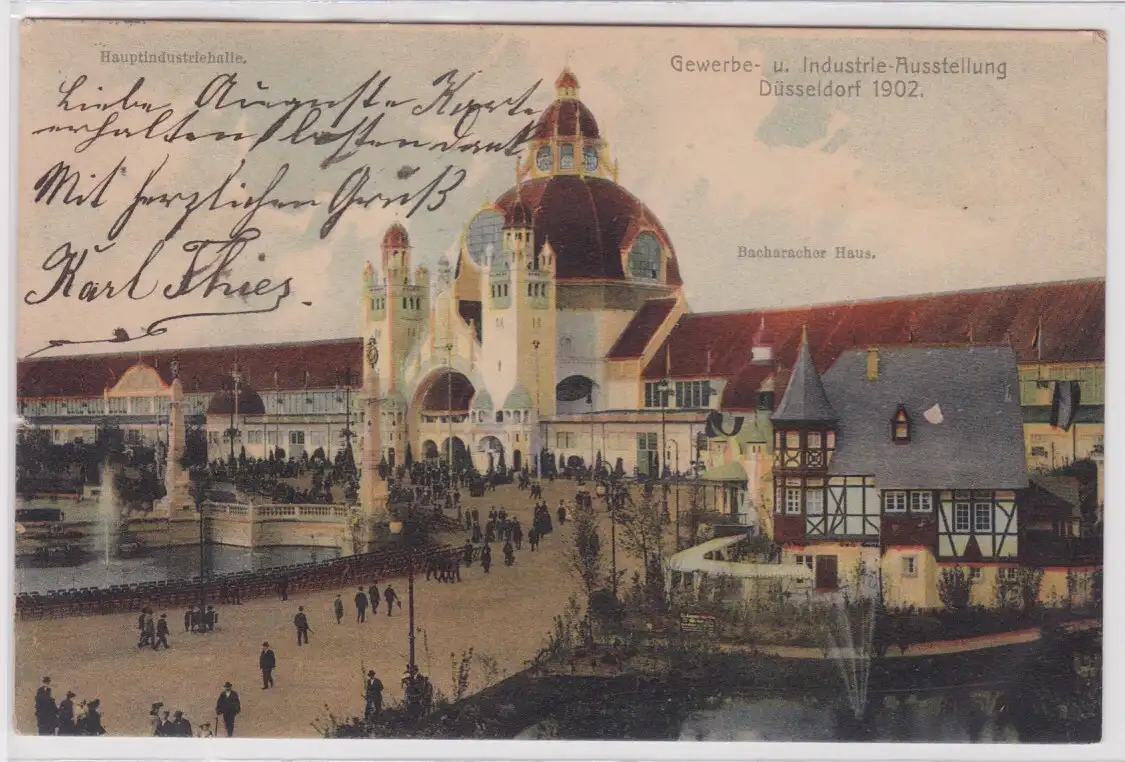 Hauptindustriehalle.
Gewerbe- u. Industrie-Ausstellung
Düsseldorf 1902.
Liebe Auguste Karte
erhalten besten dank
Mit herzlichen Gruß
Karl Thies.
Bacharacher Haus.